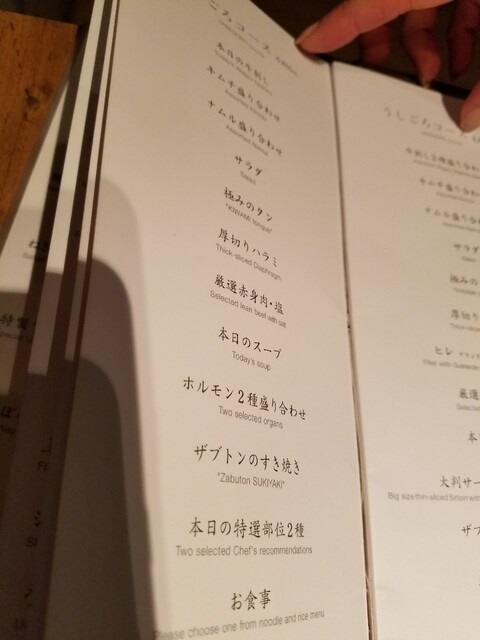 ごろコース
本日の牛刺し
キムチ盛り合わせ
ナムル盛り合わせ
サラダ
Salad
極みのタン
"KIWAMI tongue"
厚切りハラミ
Thick-sliced Diaphragm
厳選赤身肉・塩
Selected lean beef with salt
本日のスープ
Today's soup
ホルモン2種盛り合わせ
Two selected organs
ザブトンのすき焼き
"Zabuton SUKIYAKI"
本日の特選部位2種
Two selected Chef's recommendations
お食事
Please choose one from noodle and rice menu
うしごろコース
キムチ盛り合わ
ナムル盛り合わ
サラダ
極みの
厚切り
ヒレ
厳選
本
大判サー
Big size thin-sliced Sirloin with
ザブ
特製